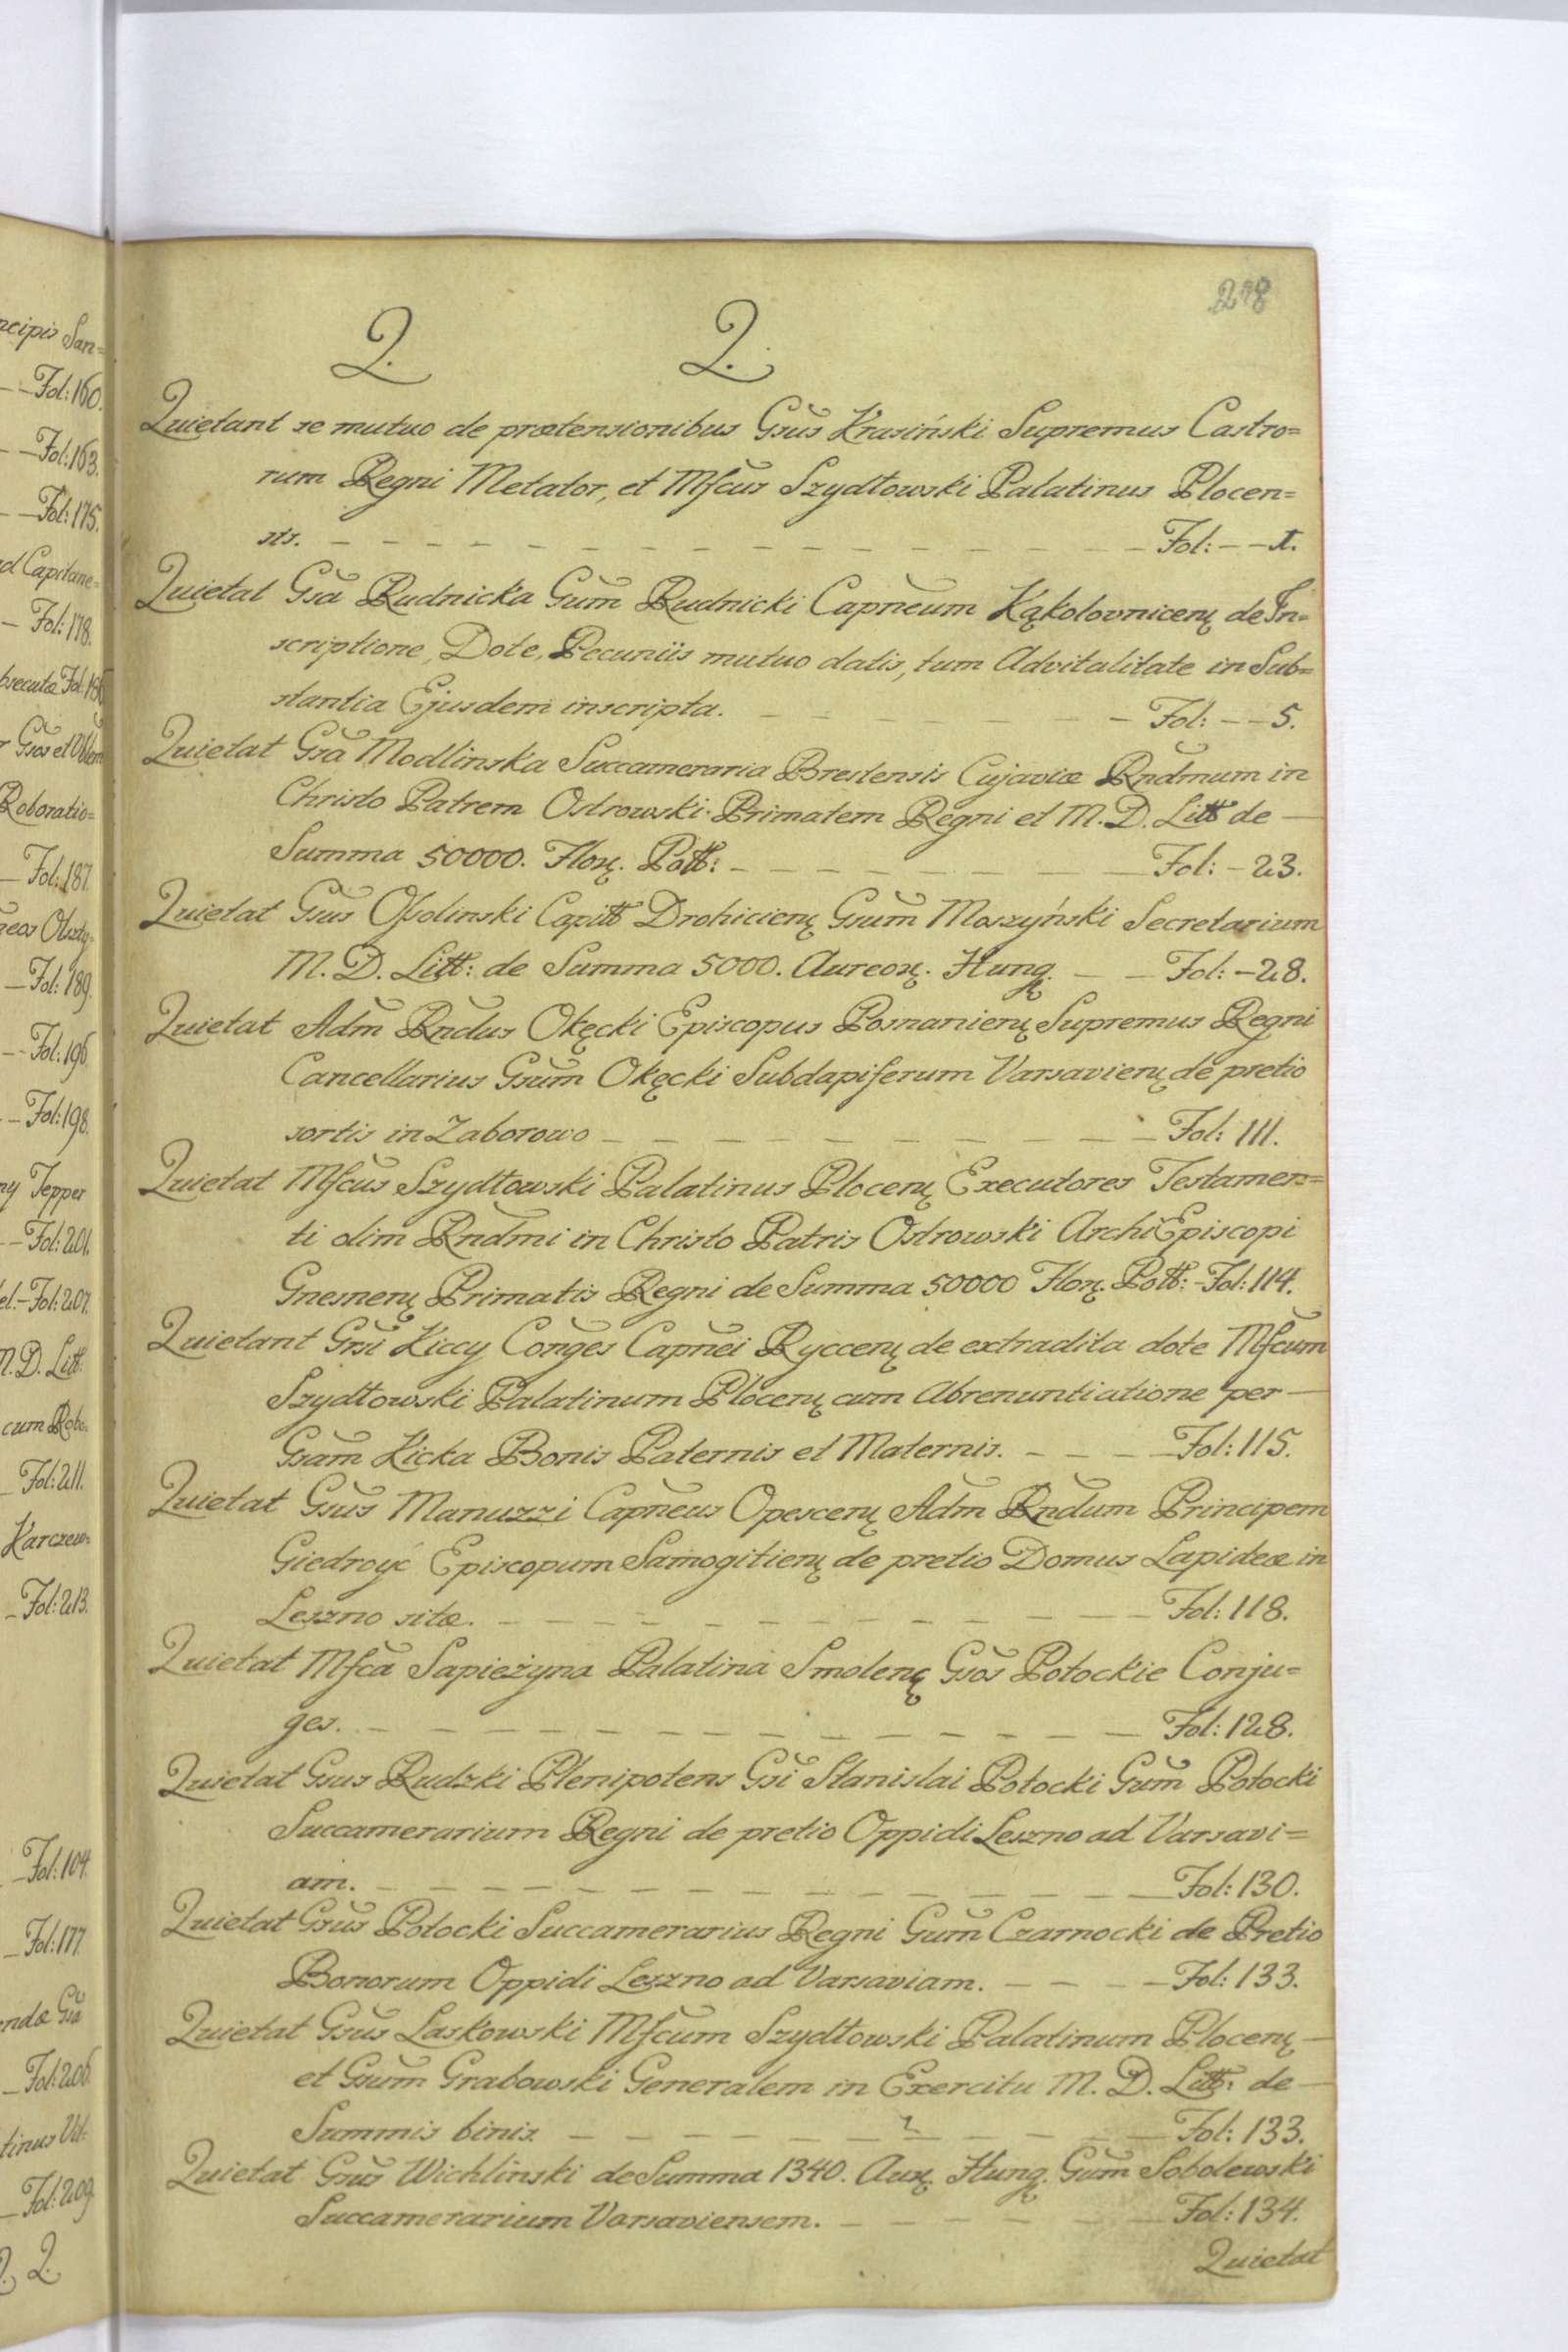 ncipis San=
Fol: 160.
Fol: 163.
Fol: 175.
d Capitane=
Fol: 178.
Fol: 187.
Fol: 189.
Fol: 196
Fol: 198.
ny Tepper
Fol: 201.
el. Fol: 207.
M. D. Litt:
cum Robo=
Fol: 211.
Karczew=
Fol: 213.
Fol: 104.
Fol: 177.
Fol: 206.
Fol: 209.
Q. Q.
218
Q. Q.
Quietant se mutuo de prætensionibus Gsus Krasiński Supremus Castro=
rum Regni Metator, et Mfcus Szydłowski Palatinus Plocen=
sis. Fol: 1.
Quietat Gsa Rudnicka Gum Rudnicki Capneum Kąkolovnicen: de In=
scriptione, Dote, Pecuniis mutuo datis, tum Advitalitate in Sub=
stantia Ejusdem inscripta. Fol: 5.
Quietat Gsa Modlinska Succameraria Brestensis Cujaviæ Rndmum in
Christo Patrem Ostrowski Primatem Regni et M. D. Litt de
Summa 50000. Flor: Poll: Fol: 23.
Quietat Gsus Ossolinski Capitt Drohicien: Gsum Moszyński Secretarium
M. D. Litt: de Summa 5000. Aureor: Hung. Fol: 28.
Quietat Adm Rndus Okęcki Episcopus Posnanien: Supremus Regni
Cancellarius Gsum Okęcki Subdapiferum Varsavien: de pretio
sortis in Zaborowo Fol: 111.
Quietat Mfcus Szydłowski Palatinus Plocen: Executores Testamen=
ti olim Rndmi in Christo Patris Ostrowski ArchiEpiscopi
Gnesnen: Primatis Regni de Summa 50000 Flor: Poll: Fol: 114.
Quietant Gnsi Kiccy Conges Capnei Ryccen: de extradita dote Mfcum
Szydłowski Palatinum Plocen: cum Abrenuntiatione per
Gsam Kicka Bonis Paternis et Maternis. Fol: 115.
Quietat Gsus Manuzzi Capneus Opescen: Adm Rndum Principem
Giedroyć Episcopum Samogitien: de pretio Domus Lapideæ in
Leszno sitæ. Fol: 118.
Quietat Mfca Sapieżyna Palatina Smolen: Gsos Potockie Conju=
ges. Fol: 128.
Quietat Gsus Rudzki Plenipotens Gsi Stanislai Potocki Gum Potocki
Succamerarium Regni de pretio Oppidi Leszno ad Varsavi=
am. Fol: 130.
Quietat Gsus Potocki Succamerarius Regni Gum Czarnocki de Pretio
Bonorum Oppidi Leszno ad Varsaviam. Fol: 133.
Quietat Gsus Laskowski Mfcum Szydłowski Palatinum Plocen:
et Gsum Grabowski Generalem in Exercitu M. D. Litt: de
Summis binis. Fol: 133.
Quietat Gsus Wichlinski de Summa 1340. Aur: Hung. Gum Sobolewski
Succamerarium Varsaviensem. Fol: 134.
Quietat